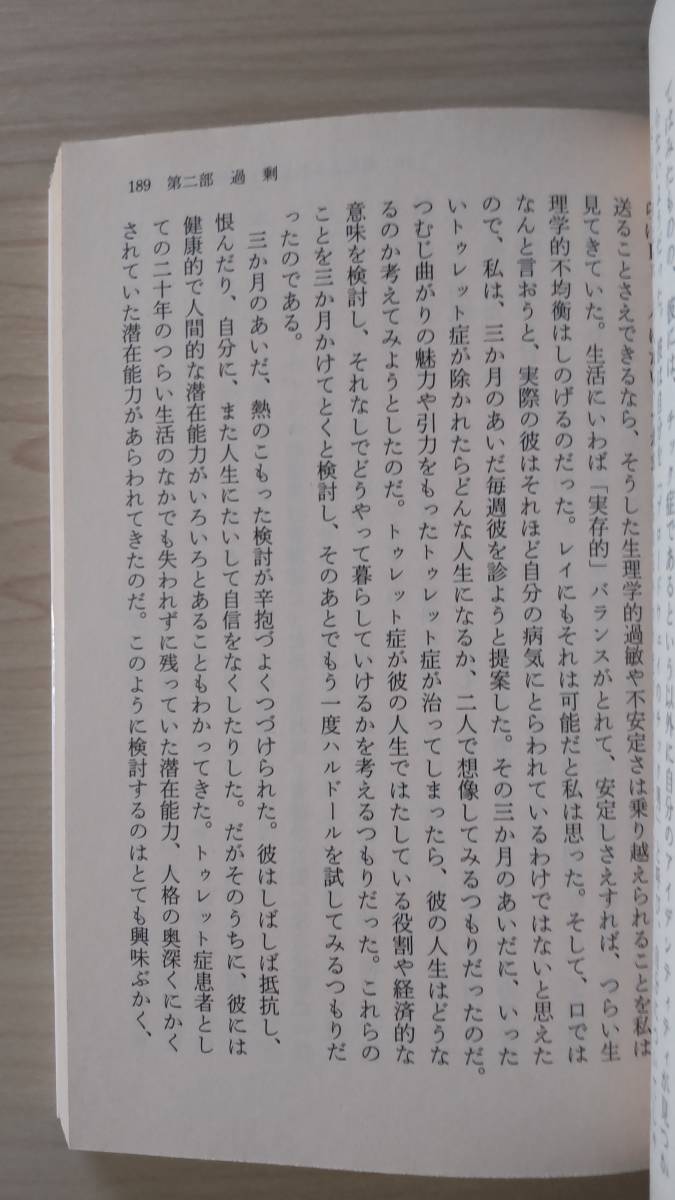 189 第二部 過 剰
送ることさえできるなら、そうした生理学的過敏や不安定さは乗り越えられることを私は
見てきていた。生活にいわば「実存的」バランスがとれて、安定しさえすれば、つらい生
理学的不均衡はしのげるのだった。レイにもそれは可能だと私は思った。そして、口では
なんと言おうと、実際の彼はそれほど自分の病気にとらわれているわけではないと思えた
ので、私は、三か月のあいだ毎週彼を診ようと提案した。その三か月のあいだに、いった
いトゥレット症が除かれたらどんな人生になるか、二人で想像してみるつもりだったのだ。
つむじ曲がりの魅力や引力をもったトゥレット症が治ってしまったら、彼の人生はどうな
るのか考えてみようとしたのだ。トゥレット症が彼の人生ではたしている役割や経済的な
意味を検討し、それなしでどうやって暮らしていけるかを考えるつもりだった。これらの
ことを三か月かけてとくと検討し、そのあとでもう一度ハルドールを試してみるつもりだ
ったのである。
三か月のあいだ、熱のこもった検討が辛抱づよくつづけられた。彼はしばしば抵抗し、
恨んだり、自分に、また人生にたいして自信をなくしたりした。だがそのうちに、彼には
健康的で人間的な潜在能力がいろいろとあることもわかってきた。トゥレット症患者とし
ての二十年のつらい生活のなかでも失われずに残っていた潜在能力、人格の奥深くにかく
されていた潜在能力があらわれてきたのだ。このように検討するのはとても興味ぶかく、